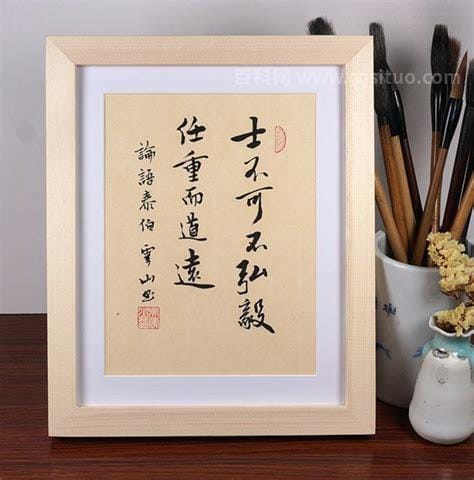 士不可不弘毅
任重而道遠
論語泰伯 雲山書
百科网 www.zgsituo.com